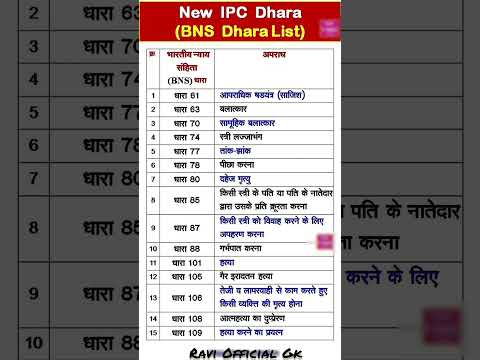 New IPC Dhara
(BNS Dhara List)
क्र भारतीय न्याय संहिता (BNS) धारा अपराध
1 धारा 61 आपराधिक षडयंत्र (साजिश)
2 धारा 63 बलात्कार
3 धारा 70 सामूहिक बलात्कार
4 धारा 74 स्त्री लज्जाभंग
5 धारा 77 तांक-झांक
6 धारा 78 पीछा करना
7 धारा 80 दहेज मृत्यु
8 धारा 85 किसी स्त्री के पति या पति के नातेदार
द्वारा उसके प्रति क्रूरता करना
9 धारा 87 किसी स्त्री को विवाह करने के लिए
अपहरण करना
10 धारा 88 गर्भपात करना
11 धारा 101 हत्या
12 धारा 105 गैर इरादतन हत्या
13 धारा 106 तेजी व लापरवाही से काम करते हुए
किसी व्यक्ति की मृत्य होना
14 धारा 108 आत्महत्या का दुष्प्रेरण
15 धारा 109 हत्या करने का प्रयत्न
Ravi Official Gk
2 धारा 63
3 धारा 70
4 धारा 74
5 धारा 77
6 धारा 78
7 धारा 80
8 धारा 85
9 धारा 87
पति के नातेदार
करना
करने के लिए